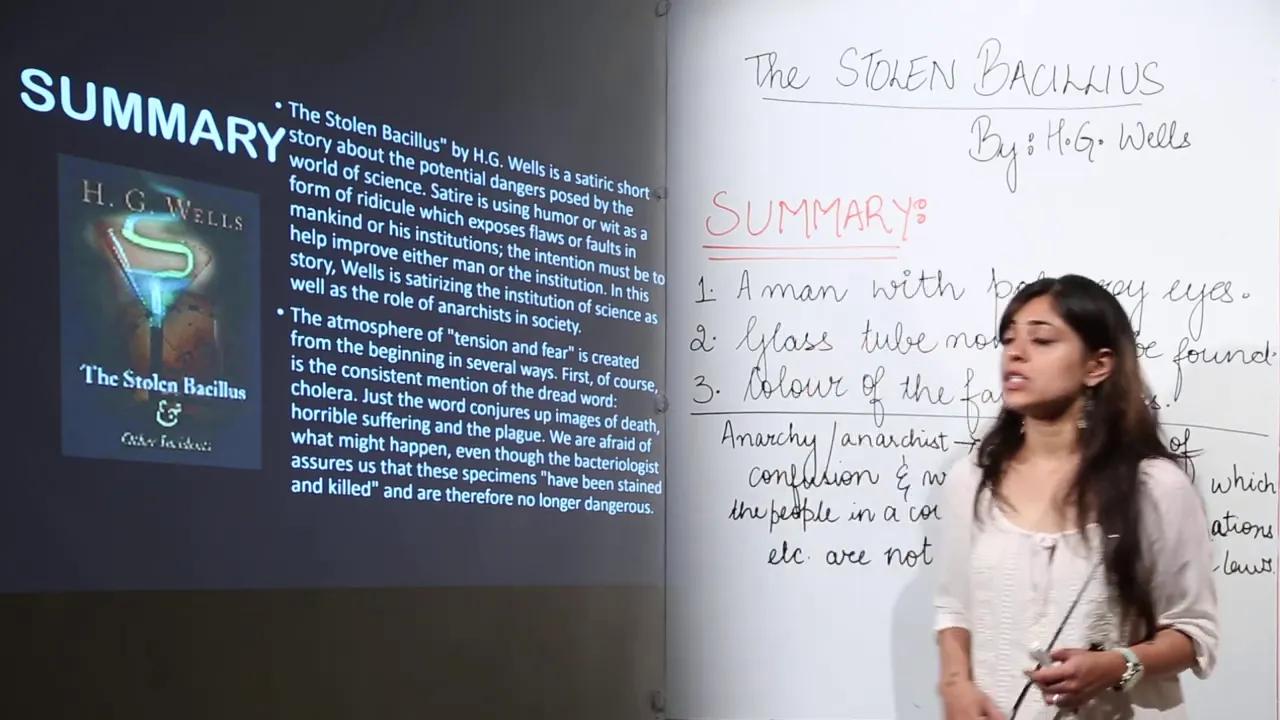 SUMMARY
H. G. WELLS
The Stolen Bacillus
&
Other Incidents
• The Stolen Bacillus" by H.G. Wells is a satiric short
story about the potential dangers posed by the
world of science. Satire is using humor or wit as a
form of ridicule which exposes flaws or faults in
mankind or his institutions; the intention must be to
help improve either man or the institution. In this
story, Wells is satirizing the institution of science as
well as the role of anarchists in society.
• The atmosphere of "tension and fear" is created
from the beginning in several ways. First, of course,
is the consistent mention of the dread word:
cholera. Just the word conjures up images of death,
horrible suffering and the plague. We are afraid of
what might happen, even though the bacteriologist
assures us that these specimens "have been stained
and killed" and are therefore no longer dangerous.
The STOLEN BACILLIUS
By: H.G. Wells
SUMMARY:
1. A man with eyes.
2. Glass tube be found.
3. Colour of the
Anarchy/anarchist → of
confusion & which
the people in a
etc. are not laws.